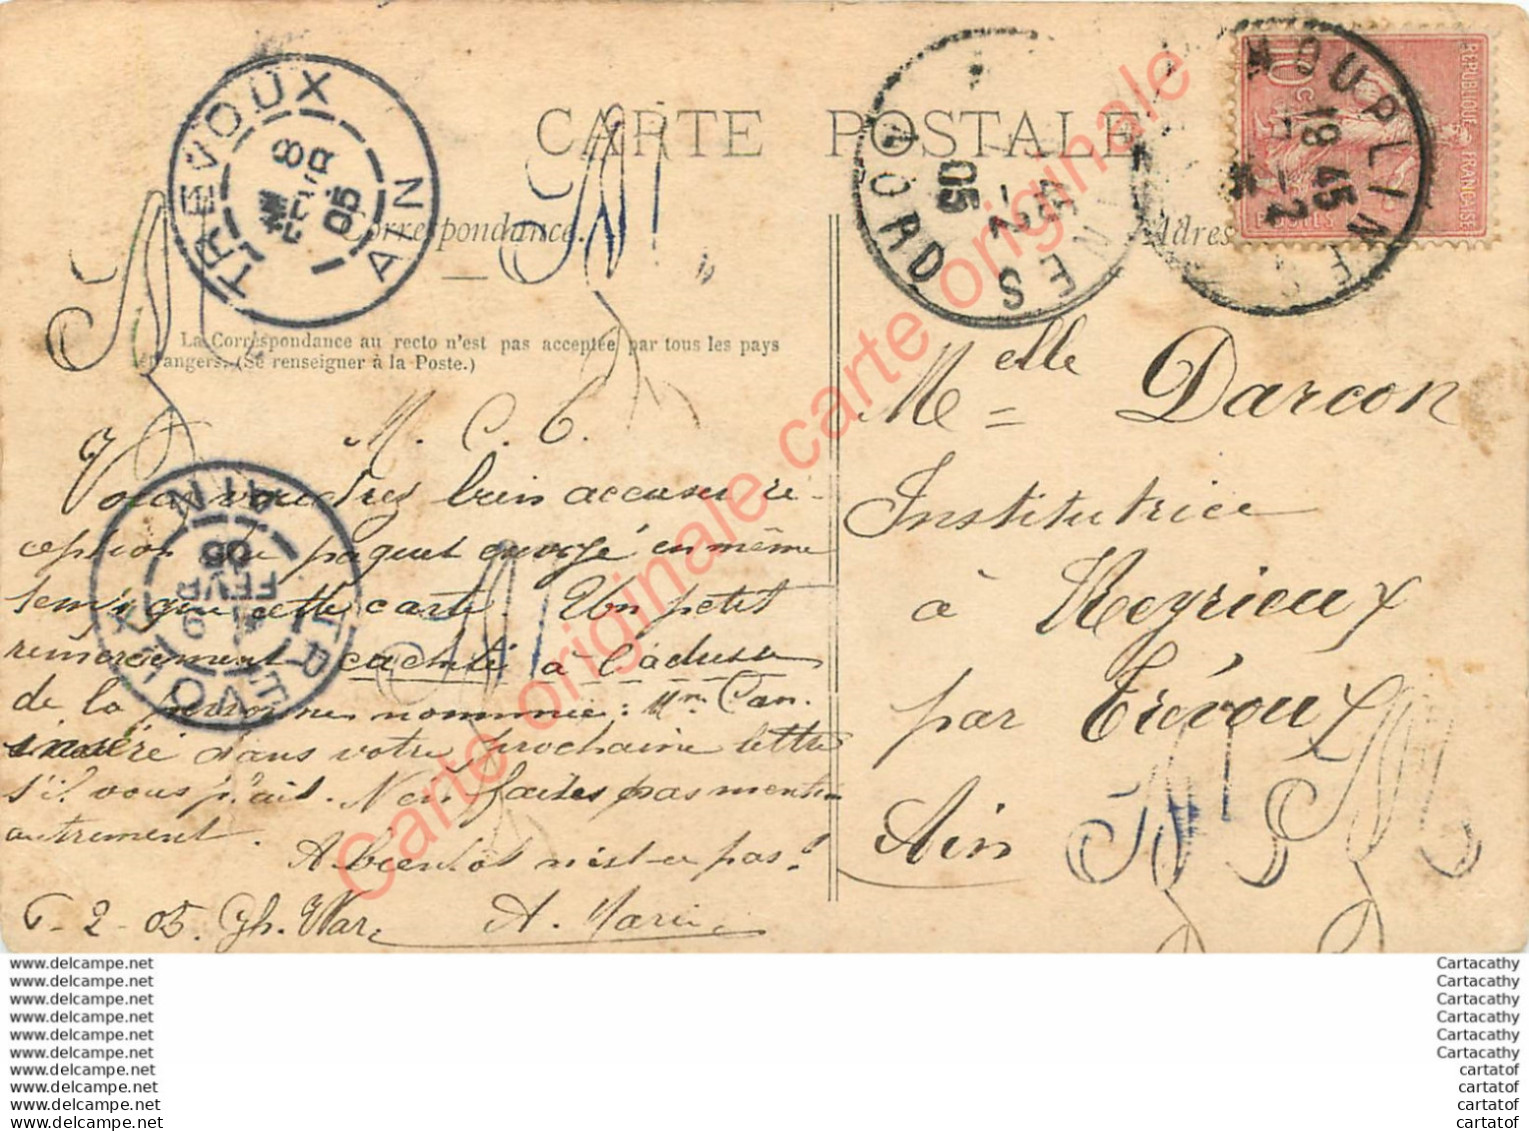 CARTE POSTALE
Correspondance.
Adres
La Correspondance au recto n'est pas acceptée par tous les pays
étrangers. (Se renseigner à la Poste.)
TREVOUX
AIN
8
FEVR
05
HOUPLINES
NORD
18 45
7-2
05
10 c
REPUBLIQUE FRANÇAISE
POSTES
M. C. C.
Vous voudrez bien accuser ré-
ception du paquet envoyé en même
temps que cette carte Un petit
remerciement cacheté à l'adresse
de la personne nommée: Mr Can.
inséré dans votre prochaine lettre
s'il vous plait. N'en faites pas mention
autrement.
A bientôt n'est-ce pas!
-2-05. Gh. War. A. Marie
TREVOUX
AIN
9
FEVR
05
Melle Darcon
Institutrice
à Reyrieux
par Trévoux
Ain
Carte originale carte originale
www.delcampe.net
www.delcampe.net
www.delcampe.net
www.delcampe.net
www.delcampe.net
www.delcampe.net
www.delcampe.net
www.delcampe.net
www.delcampe.net
www.delcampe.net
Cartacathy
Cartacathy
Cartacathy
Cartacathy
Cartacathy
Cartacathy
cartatof
cartatof
cartatof
cartatof